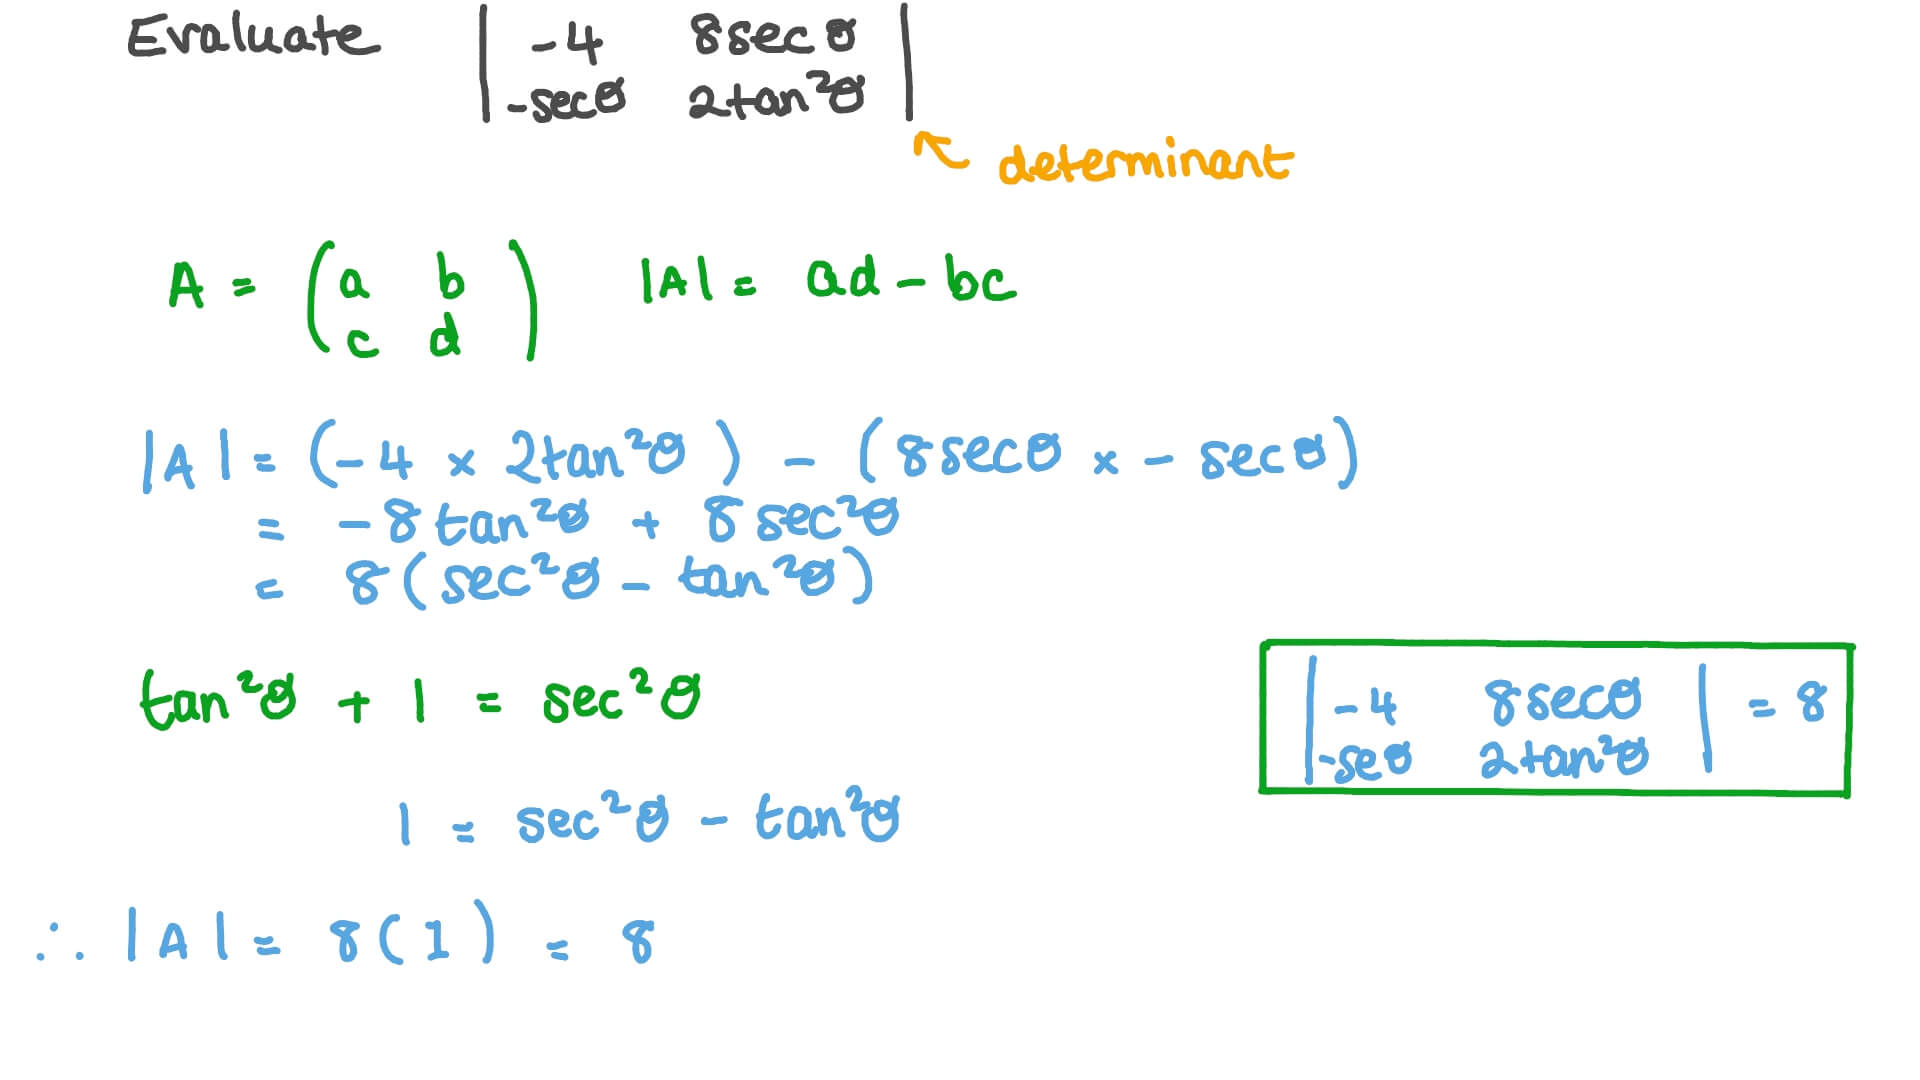 Evaluate | -4 8secθ |
| -secθ 2tan²θ |
determinant
A = ( a b ) |A| = ad - bc
( c d )
|A| = (-4 × 2tan²θ) - (8secθ × - secθ)
= -8tan²θ + 8sec²θ
= 8(sec²θ - tan²θ)
tan²θ + 1 = sec²θ
| -4 8secθ | = 8
| -seθ 2tan²θ |
1 = sec²θ - tan²θ
∴ |A| = 8(1) = 8